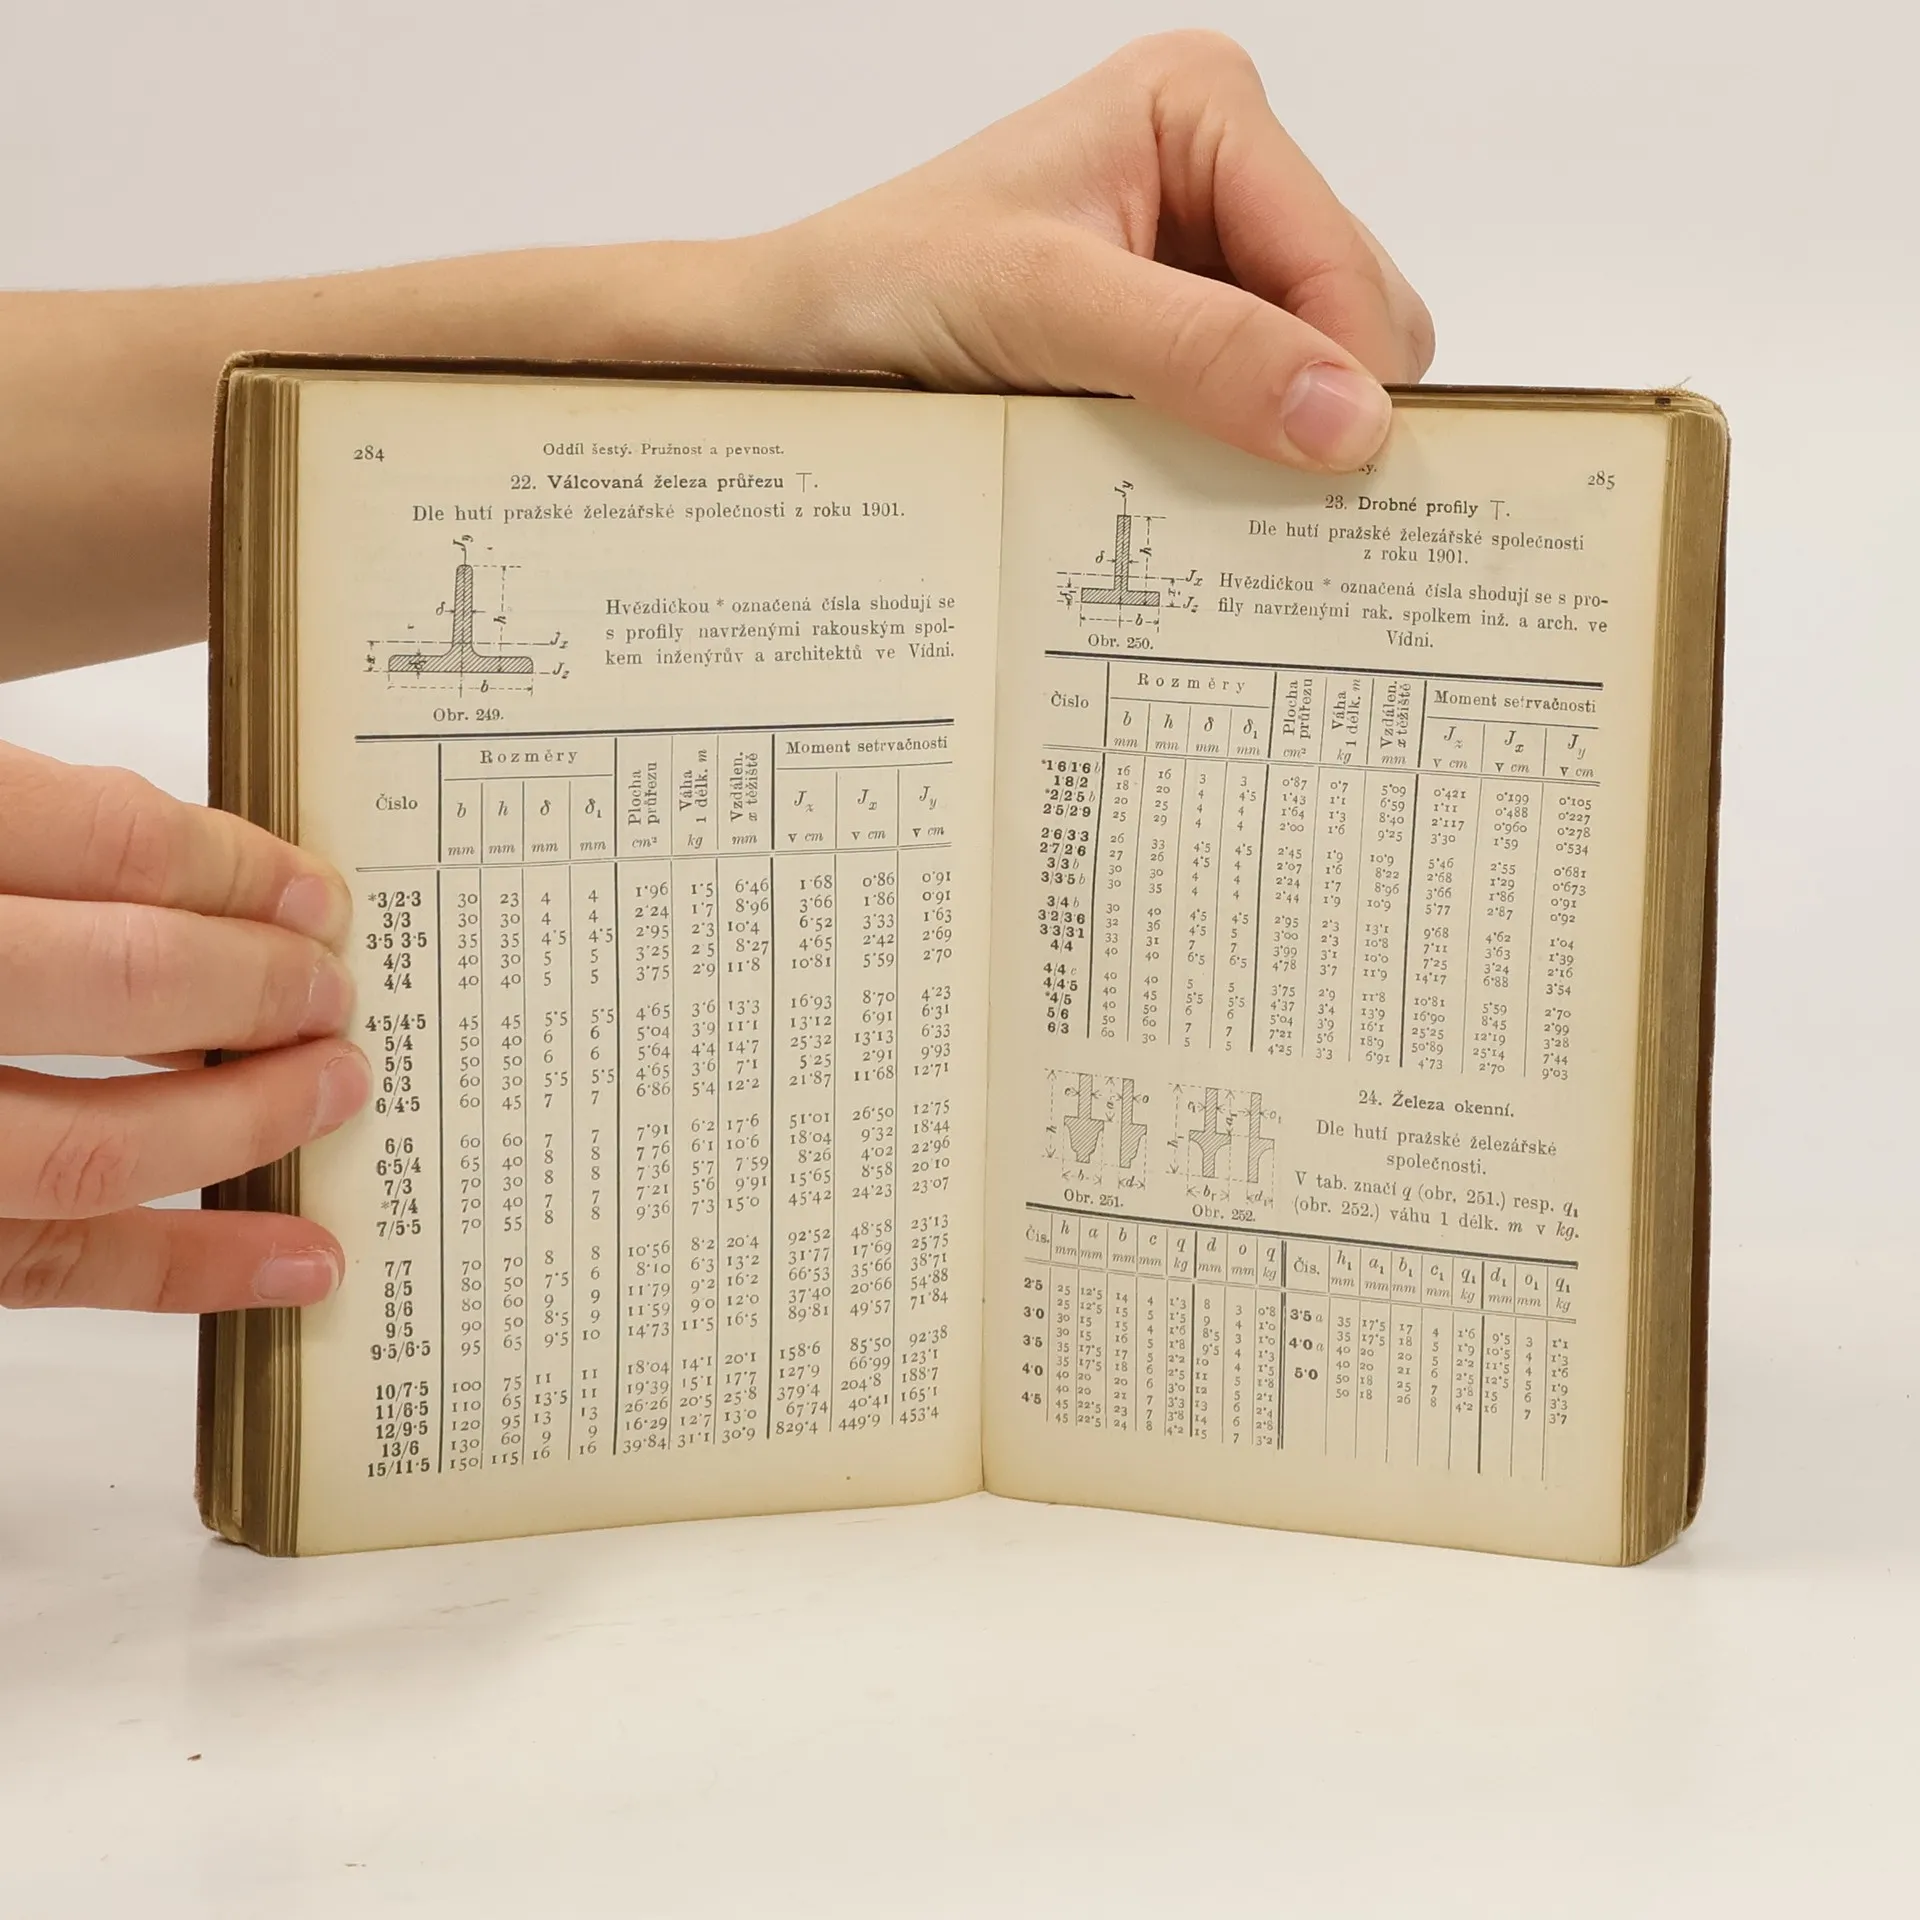 284
Oddíl šestý. Pružnost a pevnost.
22. Válcovaná železa průřezu T.
Dle hutí pražské železářské společnosti z roku 1901.
Jy
δ
h
Jx
Jz
b
Obr. 249.
Hvězdičkou * označená čísla shodují se
s profily navrženými rakouským spol-
kem inženýrův a architektů ve Vídni.
Číslo Rozměry Plocha průřezu Váha 1 délk. m Vzdálen. x těžiště Moment setrvačnosti
b h δ δ₁ Jz Jx Jy
mm mm mm mm cm² kg mm v cm v cm v cm
*3/2·3 30 23 4 4 1·96 1·5 6·46 1·68 0·86 0·91
3/3 30 30 4 4 2·24 1·7 8·96 3·66 1·86 0·91
3·5 3·5 35 35 4·5 4·5 2·95 2·3 10·4 6·52 3·33 1·63
4/3 40 30 5 5 3·25 2 5 8·27 4·65 2·42 2·69
4/4 40 40 5 5 3·75 2·9 11·8 10·81 5·59 2·70
4·5/4·5 45 45 5·5 5·5 4·65 3·6 13·3 16·93 8·70 4·23
5/4 50 40 6 6 5·04 3·9 11·1 13·12 6·91 6·31
5/5 50 50 6 6 5·64 4·4 14·7 25·32 13·13 6·33
6/3 60 30 5·5 5·5 4·65 3·6 7·1 5 25 2·91 9·93
6/4·5 60 45 7 7 6·86 5·4 12·2 21·87 11·68 12·71
6/6 60 60 7 7 7·91 6·2 17·6 51·01 26·50 12·75
6·5/4 65 40 8 8 7 76 6·1 10·6 18·04 9·32 18·44
7/3 70 30 8 8 7·36 5·7 7·59 8·26 4·02 22·96
*7/4 70 40 7 7 7·21 5·6 9·91 15·65 8·58 20·10
7/5·5 70 55 8 8 9·36 7·3 15·0 45·42 24·23 23·07
7/7 70 70 8 8 10·56 8·2 20·4 92·52 48·58 23·13
8/5 80 50 7·5 6 8·10 6·3 13·2 31·77 17·69 25·75
8/6 80 60 9 9 11·79 9·2 16·2 66·53 35·66 38·71
9/5 90 50 8·5 9 11·59 9·0 12·0 37·40 20·66 54·88
9·5/6·5 95 65 9·5 10 14·73 11·5 16·5 89·81 49·57 71·84
10/7·5 100 75 11 11 18·04 14·1 20·1 158·6 85·50 92·38
11/6·5 110 65 13·5 11 19·39 15·1 17·7 127·9 66·99 123·1
12/9·5 120 95 13 13 26·26 20·5 25·8 379·4 204·8 188·7
13/6 130 60 9 9 16·29 12·7 13·0 67·74 40·41 165·1
15/11·5 150 115 16 16 39·84 31·1 30·9 829·4 449·9 453·4
285
23. Drobné profily T.
Dle hutí pražské železářské společnosti
z roku 1901.
Jy
δ
h
Jx
Jz
b
Obr. 250.
Hvězdičkou * označená čísla shodují se s pro-
fily navrženými rak. spolkem inž. a arch. ve
Vídni.
Číslo Rozměry Plocha průřezu Váha 1 délk. m Vzdálen. x těžiště Moment setrvačnosti
b h δ δ₁ Jz Jx Jy
mm mm mm mm cm² kg mm v cm v cm v cm
*1·6/1·6 b 16 16 3 3 0·87 0·7 5·09 0·421 0·199 0·105
1·8/2 18 20 4 4·5 1·43 1·1 6·59 1·11 0·488 0·227
*2/2·5 b 20 25 4 4 1·64 1·3 8·40 2·117 0·960 0·278
2·5/2·9 25 29 4 4 2·00 1·6 9·25 3·30 1·59 0·534
2·6/3·3 26 33 4·5 4·5 2·45 1·9 10·9 5·46 2·55 0·681
2·7 2·6 27 26 4·5 4 2·07 1·6 8·22 2·68 1·29 0·673
3/3 b 30 30 4 4 2·24 1·7 8·96 3·66 1·86 0·91
3/3·5 b 30 35 4 4 2·44 1·9 10·9 5·77 2·87 0·92
3/4 b 30 40 4·5 4·5 2·95 2·3 13·1 9·68 4·62 1·04
3·2/3·6 32 36 4·5 5 3·00 2·3 10·8 7·11 3·63 1·39
3·3/3·1 33 31 7 7 3·99 3·1 10·0 7·25 3·24 2·16
4/4 40 40 6·5 6·5 4·78 3·7 11·9 14·17 6·88 3·54
4/4 c 40 40 5 5 3·75 2·9 11·8 10·81 5·59 2·70
4/4·5 40 45 5·5 5·5 4·37 3·4 13·9 16·90 8·45 2·99
*4/5 40 50 6 6 5·04 3·9 16·1 25·25 12·19 3·28
5/6 50 60 7 7 7·21 5·6 18·9 50·89 25·14 7·44
6/3 60 30 5 5 4·25 3·3 6·91 4·73 2·70 9·03
Obr. 251.
Obr. 252.
24. Železa okenní.
Dle hutí pražské železářské
společnosti.
V tab. značí q (obr. 251.) resp. q₁
(obr. 252.) váhu 1 délk. m v kg.
Čís. h a b c q d o q Čis. h₁ a₁ b₁ c₁ q₁ d₁ o₁ q₁
mm mm mm mm kg mm mm kg mm mm mm mm kg mm mm kg
2·5 25 12·5 14 4 1·3 8 3 0·8
25 12·5 15 5 1·5 9 4 1·0
3·0 30 15 15 4 1·6 8·5 3 1·0
30 15 16 5 1·8 9·5 4 1·3
3·5 35 17·5 17 5 2·2 10 4 1·5
35 17·5 18 6 2·5 11 5 1·8
4·0 40 20 20 6 3·0 12 5 2·1
40 20 21 7 3·3 13 6 2·4
4·5 45 22·5 23 7 3·8 14 6 2·8
45 22·5 24 8 4·2 15 7 3·2
3·5 a 35 17·5 17 4 1·6 9·5 3 1·1
35 17·5 18 5 1·9 10·5 4 1·3
4·0 a 40 20 20 5 2·2 11·5 4 1·6
40 20 21 6 2·5 12·5 5 1·9
5·0 50 18 25 7 3·8 15 6 3·3
50 18 26 8 4·2 16 7 3·7